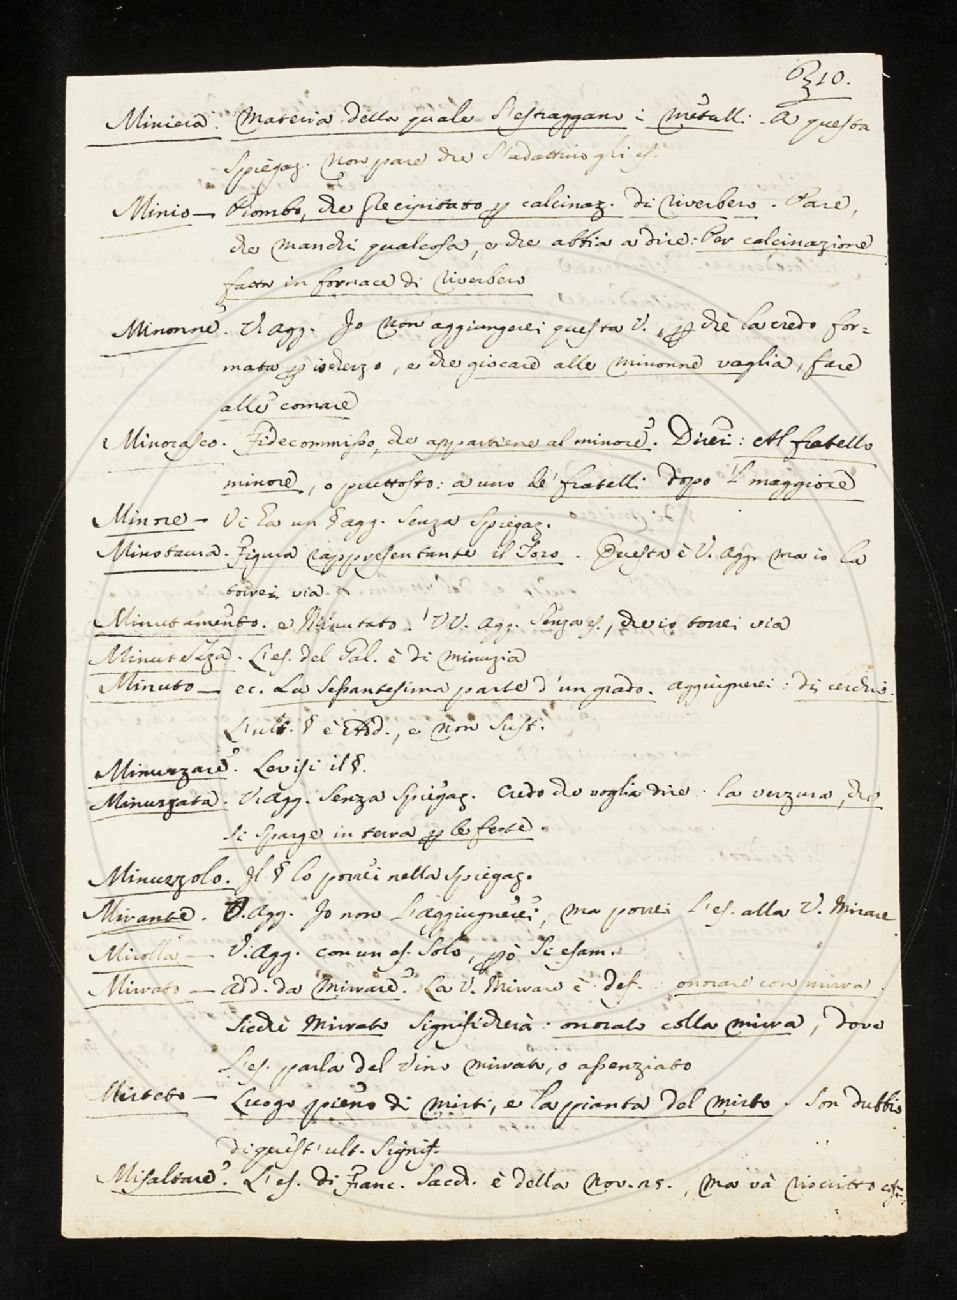 210.
Miniera. Materia della quale s'estraggano i metalli. A questa
spiegaz. non pare che s'adattino gli es.
Minio — Piombo, che precipitato p calcinaz. di riverbero. Pare,
che manchi qualcosa, e che abbia a dire: Per calcinazione
fatta in fornace di riverbero
Minonne. V. agg. Io non aggiungerei questa V., p chè la credo for=
mata p ischerzo, e che giocare alle minonne vaglia, fare
alle comare
Minorasco. Fidecommisso, che appartiene al minore. Direi: Al fratello
minore, o piuttosto: a uno de' fratelli dopo 'l maggiore
Minore — Vi ha un § agg. senza spiegaz.
Minotaura. Figura rappresentante il Toro. Questa è V. agg. ma io la
torrei via.
Minutamento. e Minutato. VV. agg. senza es., che io torrei via
Minutezza. L'es. del Gal. è di minuzia
Minuto — ec. La sessantesima parte d'un grado. aggiugnerei: di cerchio.
L'ult. § è Add., e non sust.
Minuzzare. Levisi il §.
Minuzzata. V. agg. senza spiegaz. Credo che voglia dire: la verzura, che
si sparge in terra p le feste.
Minuzzolo. Il § lo porrei nella spiegaz.
Mirante. V. agg. Io non l'aggiugnerei, ma porrei l'es. alla V. Mirare
Mirolla — V. agg. con un es. solo, p ò si esam.
Mirrato — Add. da Mirrare. La V. Mirrare è def.: onorare con mirra.
sicchè Mirrato significherà: onorato colla mirra, dove
l'es. parla del vino mirrato, o assenziato
Mirteto — Luogo pieno di mirti, e la pianta del mirto. Son dubbio
di quest'ult. signif.
Misaltare. L'es. di Franc. Sacch. è della nov. 25., ma và riscritto